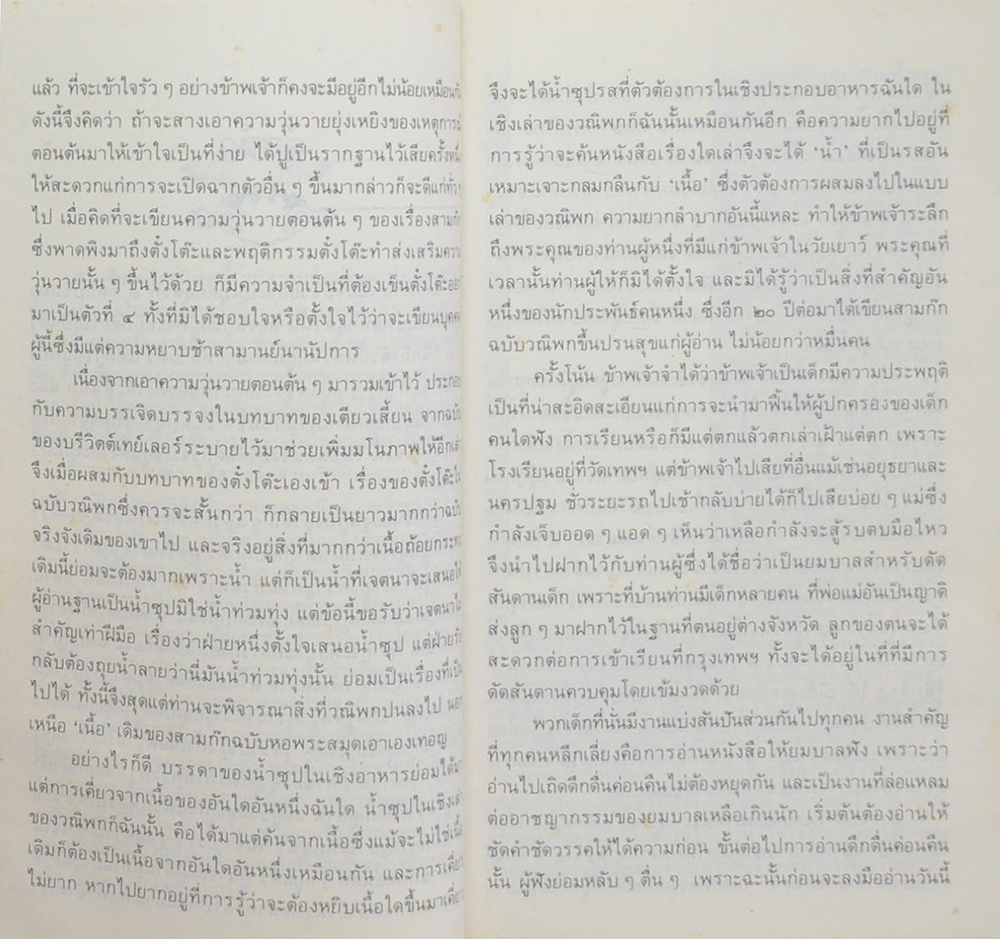 แล้ว ที่จะเข้าใจรัว ๆ อย่างข้าพเจ้าก็คงจะมีอยู่อีกไม่น้อยเหมือนกัน
ดังนี้จึงคิดว่า ถ้าจะสางเอาความวุ่นวายยุ่งเหยิงของเหตุการณ์
ตอนต้นมาให้เข้าใจเป็นที่ง่าย ได้ปูเป็นรากฐานไว้เสียครั้งหนึ่ง
ให้สะดวกแก่การจะเปิดฉากตัวอื่น ๆ ขึ้นมากล่าวก็จะดีแก่ทั่ว
ไป เมื่อคิดที่จะเขียนความวุ่นวายตอนต้น ๆ ของเรื่องสามก๊ก
ซึ่งพาดพิงมาถึงตั๋งโต๊ะและพฤติกรรมตั๋งโต๊ะทำส่งเสริมความ
วุ่นวายนั้น ๆ ขึ้นไว้ด้วย ก็มีความจำเป็นที่ต้องเข็นตั๋งโต๊ะออก
มาเป็นตัวที่ ๔ ทั้งที่มิได้ชอบใจหรือตั้งใจไว้ว่าจะเขียนบุคคล
ผู้นี้ซึ่งมีแต่ความหยาบช้าสามานย์นานัปการ
เนื่องจากเอาความวุ่นวายตอนต้น ๆ มารวมเข้าไว้ ประกอบ
กับความบรรเจิดบรรจงในบทบาทของเตียวเสี้ยน จากฉบับ
ของบรีวิตต์เทย์เลอร์ระบายไว้มาช่วยเพิ่มมโนภาพให้อีกเล่า
จึงเมื่อผสมกับบทบาทของตั๋งโต๊ะเองเข้า เรื่องของตั๋งโต๊ะใน
ฉบับวณิพกซึ่งควรจะสั้นกว่า ก็กลายเป็นยาวมากกว่าฉบับ
จริงจังเดิมของเขาไป และจริงอยู่สิ่งที่มากกว่าเนื้อถ้อยกระทง
เดิมนี้ย่อมจะต้องมากเพราะน้ำ แต่ก็เป็นน้ำที่เจตนาจะเสนอให้
ผู้อ่านฐานเป็นน้ำซุปมิใช่น้ำท่วมทุ่ง แต่ข้อนี้ขอรับว่าเจตนาไม่
สำคัญเท่าฝีมือ เรื่องว่าฝ่ายหนึ่งตั้งใจเสนอน้ำซุป แต่ฝ่ายรับ
กลับต้องถุยน้ำลายว่านี่มันน้ำท่วมทุ่งนั้น ย่อมเป็นเรื่องที่เป็น
ไปได้ ทั้งนี้จึงสุดแต่ท่านจะพิจารณาสิ่งที่วณิพกปนลงไป นอก
เหนือ ‘เนื้อ’ เดิมของสามก๊กฉบับหอพระสมุดเอาเองเทอญ
อย่างไรก็ดี บรรดาของน้ำซุปในเชิงอาหารย่อมได้มา
แต่การเคี่ยวจากเนื้อของอันใดอันหนึ่งฉันใด น้ำซุปในเชิงเล่า
ของวณิพกก็ฉันนั้น คือได้มาแต่ค้นจากเนื้อซึ่งแม้จะไม่ใช่เนื้อ
เดิมก็ต้องเป็นเนื้อจากอันใดอันหนึ่งเหมือนกัน และการเคี่ยว
ไม่ยาก หากไปยากอยู่ที่การรู้ว่าจะต้องหยิบเนื้อใดขึ้นมาเคี่ยว
จึงจะได้น้ำซุปรสที่ตัวต้องการในเชิงประกอบอาหารฉันใด ใน
เชิงเล่าของวณิพกก็ฉันนั้นเหมือนกันอีก คือความยากไปอยู่ที่
การรู้ว่าจะค้นหนังสือเรื่องใดเล่าจึงจะได้ ‘น้ำ’ ที่เป็นรสอัน
เหมาะเจาะกลมกลืนกับ ‘เนื้อ’ ซึ่งตัวต้องการผสมลงไปในแบบ
เล่าของวณิพก ความยากลำบากอันนี้แหละ ทำให้ข้าพเจ้าระลึก
ถึงพระคุณของท่านผู้หนึ่งที่มีแก่ข้าพเจ้าในวัยเยาว์ พระคุณที่
เวลานั้นท่านผู้ให้ก็มิได้ตั้งใจ และมิได้รู้ว่าเป็นสิ่งที่สำคัญอัน
หนึ่งของนักประพันธ์คนหนึ่ง ซึ่งอีก ๒๐ ปีต่อมาได้เขียนสามก๊ก
ฉบับวณิพกขึ้นปรนสุขแก่ผู้อ่าน ไม่น้อยกว่าหมื่นคน
ครั้งโน้น ข้าพเจ้าจำได้ว่าข้าพเจ้าเป็นเด็กมีความประพฤติ
เป็นที่น่าสะอิดสะเอียนแก่การจะนำมาฟื้นให้ผู้ปกครองของเด็ก
คนใดฟัง การเรียนหรือก็มีแต่ตกแล้วตกเล่าเฝ้าแต่ตก เพราะ
โรงเรียนอยู่ที่วัดเทพฯ แต่ข้าพเจ้าไปเสียที่อื่นแม้เช่นอยุธยาและ
นครปฐม ชั่วระยะรถไปเช้ากลับบ่ายได้ก็ไปเสียบ่อย ๆ แม่ซึ่ง
กำลังเจ็บออด ๆ แอด ๆ เห็นว่าเหลือกำลังจะสู้รบตบมือไหว
จึงนำไปฝากไว้กับท่านผู้ซึ่งได้ชื่อว่าเป็นยมบาลสำหรับดัด
สันดานเด็ก เพราะที่บ้านท่านมีเด็กหลายคน ที่พ่อแม่อันเป็นญาติ
ส่งลูก ๆ มาฝากไว้ในฐานที่ตนอยู่ต่างจังหวัด ลูกของตนจะได้
สะดวกต่อการเข้าเรียนที่กรุงเทพฯ ทั้งจะได้อยู่ในที่ที่มีการ
ดัดสันดานควบคุมโดยเข้มงวดด้วย
พวกเด็กที่นั่นมีงานแบ่งสันปันส่วนกันไปทุกคน งานสำคัญ
ที่ทุกคนหลีกเลี่ยงคือการอ่านหนังสือให้ยมบาลฟัง เพราะว่า
อ่านไปเถิดดึกดื่นค่อนคืนไม่ต้องหยุดกัน และเป็นงานที่ล่อแหลม
ต่ออาชญากรรมของยมบาลเหลือเกินนัก เริ่มต้นต้องอ่านให้
ชัดคำชัดวรรคให้ได้ความก่อน ขั้นต่อไปการอ่านดึกดื่นค่อนคืน
นั้น ผู้ฟังย่อมหลับ ๆ ตื่น ๆ เพราะฉะนั้นก่อนจะลงมืออ่านวันนี้